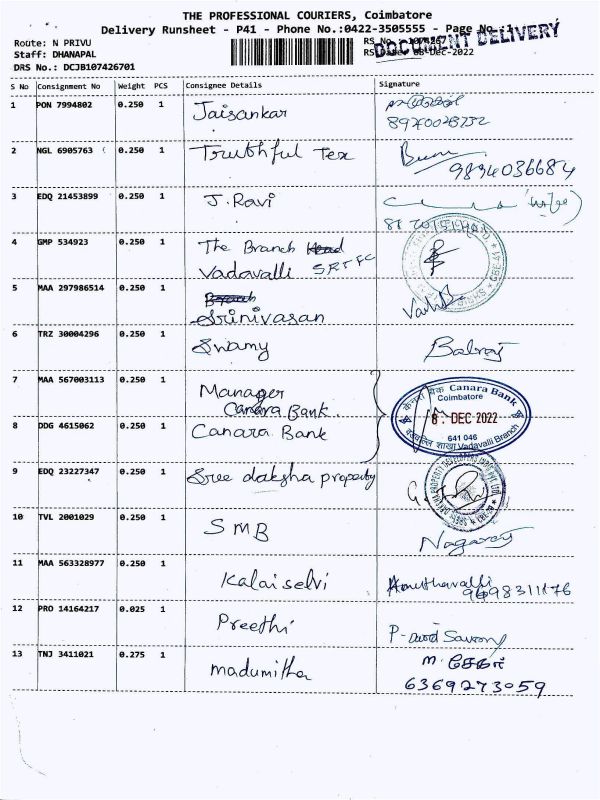 THE PROFESSIONAL COURIERS, Coimbatore
Delivery Runsheet - P41 - Phone No.:0422-3505555 - Page No.:1
DOCUMENT DELIVERY
Route: N PRIVU
Staff: DHANAPAL
08-Dec-2022
DRS No.: DCJB107426701
S No Consignment No Weight PCS Consignee Details Signature
1 PON 7994802 0.250 1 Jaisankar
2 NGL 6905763 0.250 1 Truthful Tex
9894036684
3 EDQ 21453899 0.250 1 J. Ravi
4 GMP 534923 0.250 1 The Branch
Vadavalli SRTFC
5 MAA 297986514 0.250 1
Srinivasan
6 TRZ 30004296 0.250 1 Swamy Balraj
7 MAA 567003113 0.250 1 Manager
Canara Bank
केनरा बैंक Canara Bank
Coimbatore
DEC 2022
641 046
शाखा Vadavalli Branch
8 DDG 4615062 0.250 1 Canara Bank
9 EDQ 23227347 0.250 1 Sree daksha property
10 TVL 2001029 0.250 1 SMB Nagaraj
11 MAA 563328977 0.250 1 Kalaiselvi
12 PRO 14164217 0.025 1 Preethi
13 TNJ 3411021 0.275 1 madumitha
m. சேகர்
6369273059